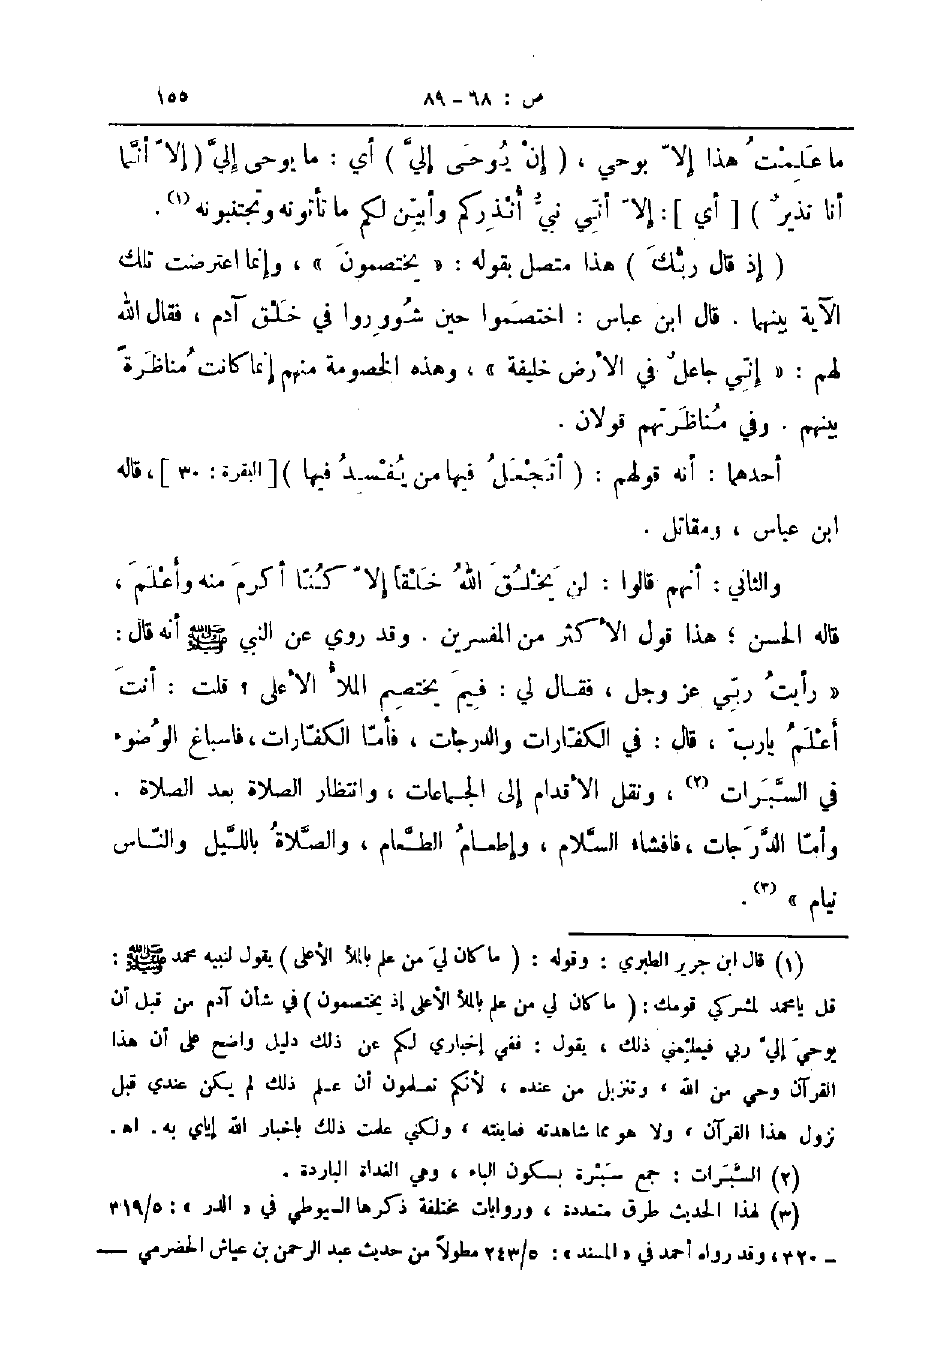 ص : ٦٨ - ٨٩ ١٥٥
ما عَلِمْتُ هذا إلاّ بوحي ، ( إِنْ يُوحَى إليَّ ) أي : ما يوحى إليَّ ( إلاّ أنَّما
أنا نذيرٌ ) [ أي ] : إلاّ أنّي نبيٌّ أُنْذِركم وأبيّن لكم ما تأتونه وتجتنبونه (١) .
( إذ قال ربُّكَ ) هذا متصل بقوله : « يختصمونَ » ، وإنما اعترضت تلك
الآية بينها . قال ابن عباس : اختصَموا حين شُووِروا في خَلْق آدم ، فقال الله
لهم : « إنّي جاعلٌ في الأرض خليفة » ، وهذه الخصومة منهم إنما كانت مُناظَرةً
بينهم . وفي مُناظَرتهم قولان .
أحدهما : أنه قولهم : ( أتَجْعَلُ فيها من يُفْسِدُ فيها ) [ البقرة : ٣٠ ] ، قاله
ابن عباس ، ومقاتل .
والثاني : أنهم قالوا : لن يَخْلُقَ اللهُ خَلْقاً إلاّ كُنّا أكرمَ منه وأعْلَمَ ،
قاله الحسن ؛ هذا قول الأكثر من المفسرين . وقد روي عن النبي ﷺ أنه قال :
« رأيتُ ربّي عز وجل ، فقـال لي : فيمَ يختصم الملأُ الأعلى ؟ قلت : أنتَ
أعْلَمُ ياربّ ، قال : في الكفّارات والدرجات ، فأمّا الكفّارات ، فإسباغ الوُضوء
في السَّبَرات (٢) ، ونقل الأقدام إلى الجماعات ، وانتظار الصلاة بعد الصلاة .
وأمّا الدَّرَجات ، فإفشاء السَّلام ، وإطعـامُ الطَّعام ، والصَّلاةُ باللَّيل والنَّاس
نيام » (٣) .
(١) قال ابن جرير الطبري : وقوله : ( ما كان ليَ من علم بالملأ الأعلى ) يقول لنبيه محمد ﷺ :
قل يا محمد لمشركي قومك : ( ما كان لي من علم بالملأ الأعلى إذ يختصمون ) في شأن آدم من قبل أن
يوحيَ إليّ ربي فيعلِّمني ذلك ، يقول : ففي إخباري لكم عن ذلك دليل واضح على أن هذا
القرآن وحي من الله ، وتنزيل من عنده ، لأنكم تعلمون أن علم ذلك لم يكن عندي قبل
نزول هذا القرآن ، ولا هو مما شاهدته فعاينته ، ولكني علمت ذلك بإخبار الله إياي به . اهـ .
(٢) السَّبَرات : جمع سَبْرة بسكون الباء ، وهي الغداة الباردة .
(٣) لهذا الحديث طرق متعددة ، وروايات مختلفة ذكرها السيوطي في « الدر » : ٣١٩/٥
ـ ٣٢٠ ، وقد رواه أحمد في « المسند » : ٢٤٣/٥ مطولاً من حديث عبد الرحمن بن عياش الحضرمي —